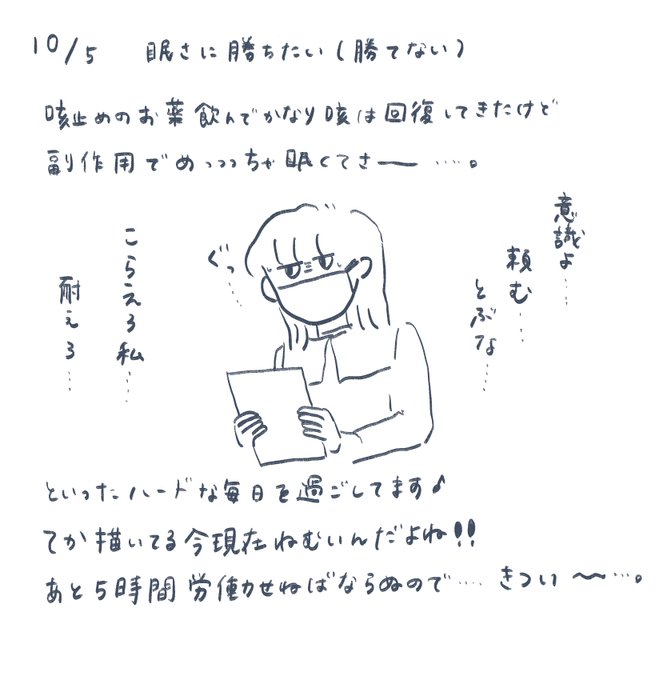 10/5 眠さに勝ちたい(勝てない)
咳止めのお薬飲んでかなり咳は回復してきたけど
副作用でめっっっちゃ眠くてさー……。
意識よ…
頼む…
とぶな…
ぐっ…
こらえろ私…
耐えろ…
といったハードな毎日を過ごしてます♪
てか描いてる今現在ねむいんだよね!!
あと5時間労働せねばならぬので…… きつい〜…。